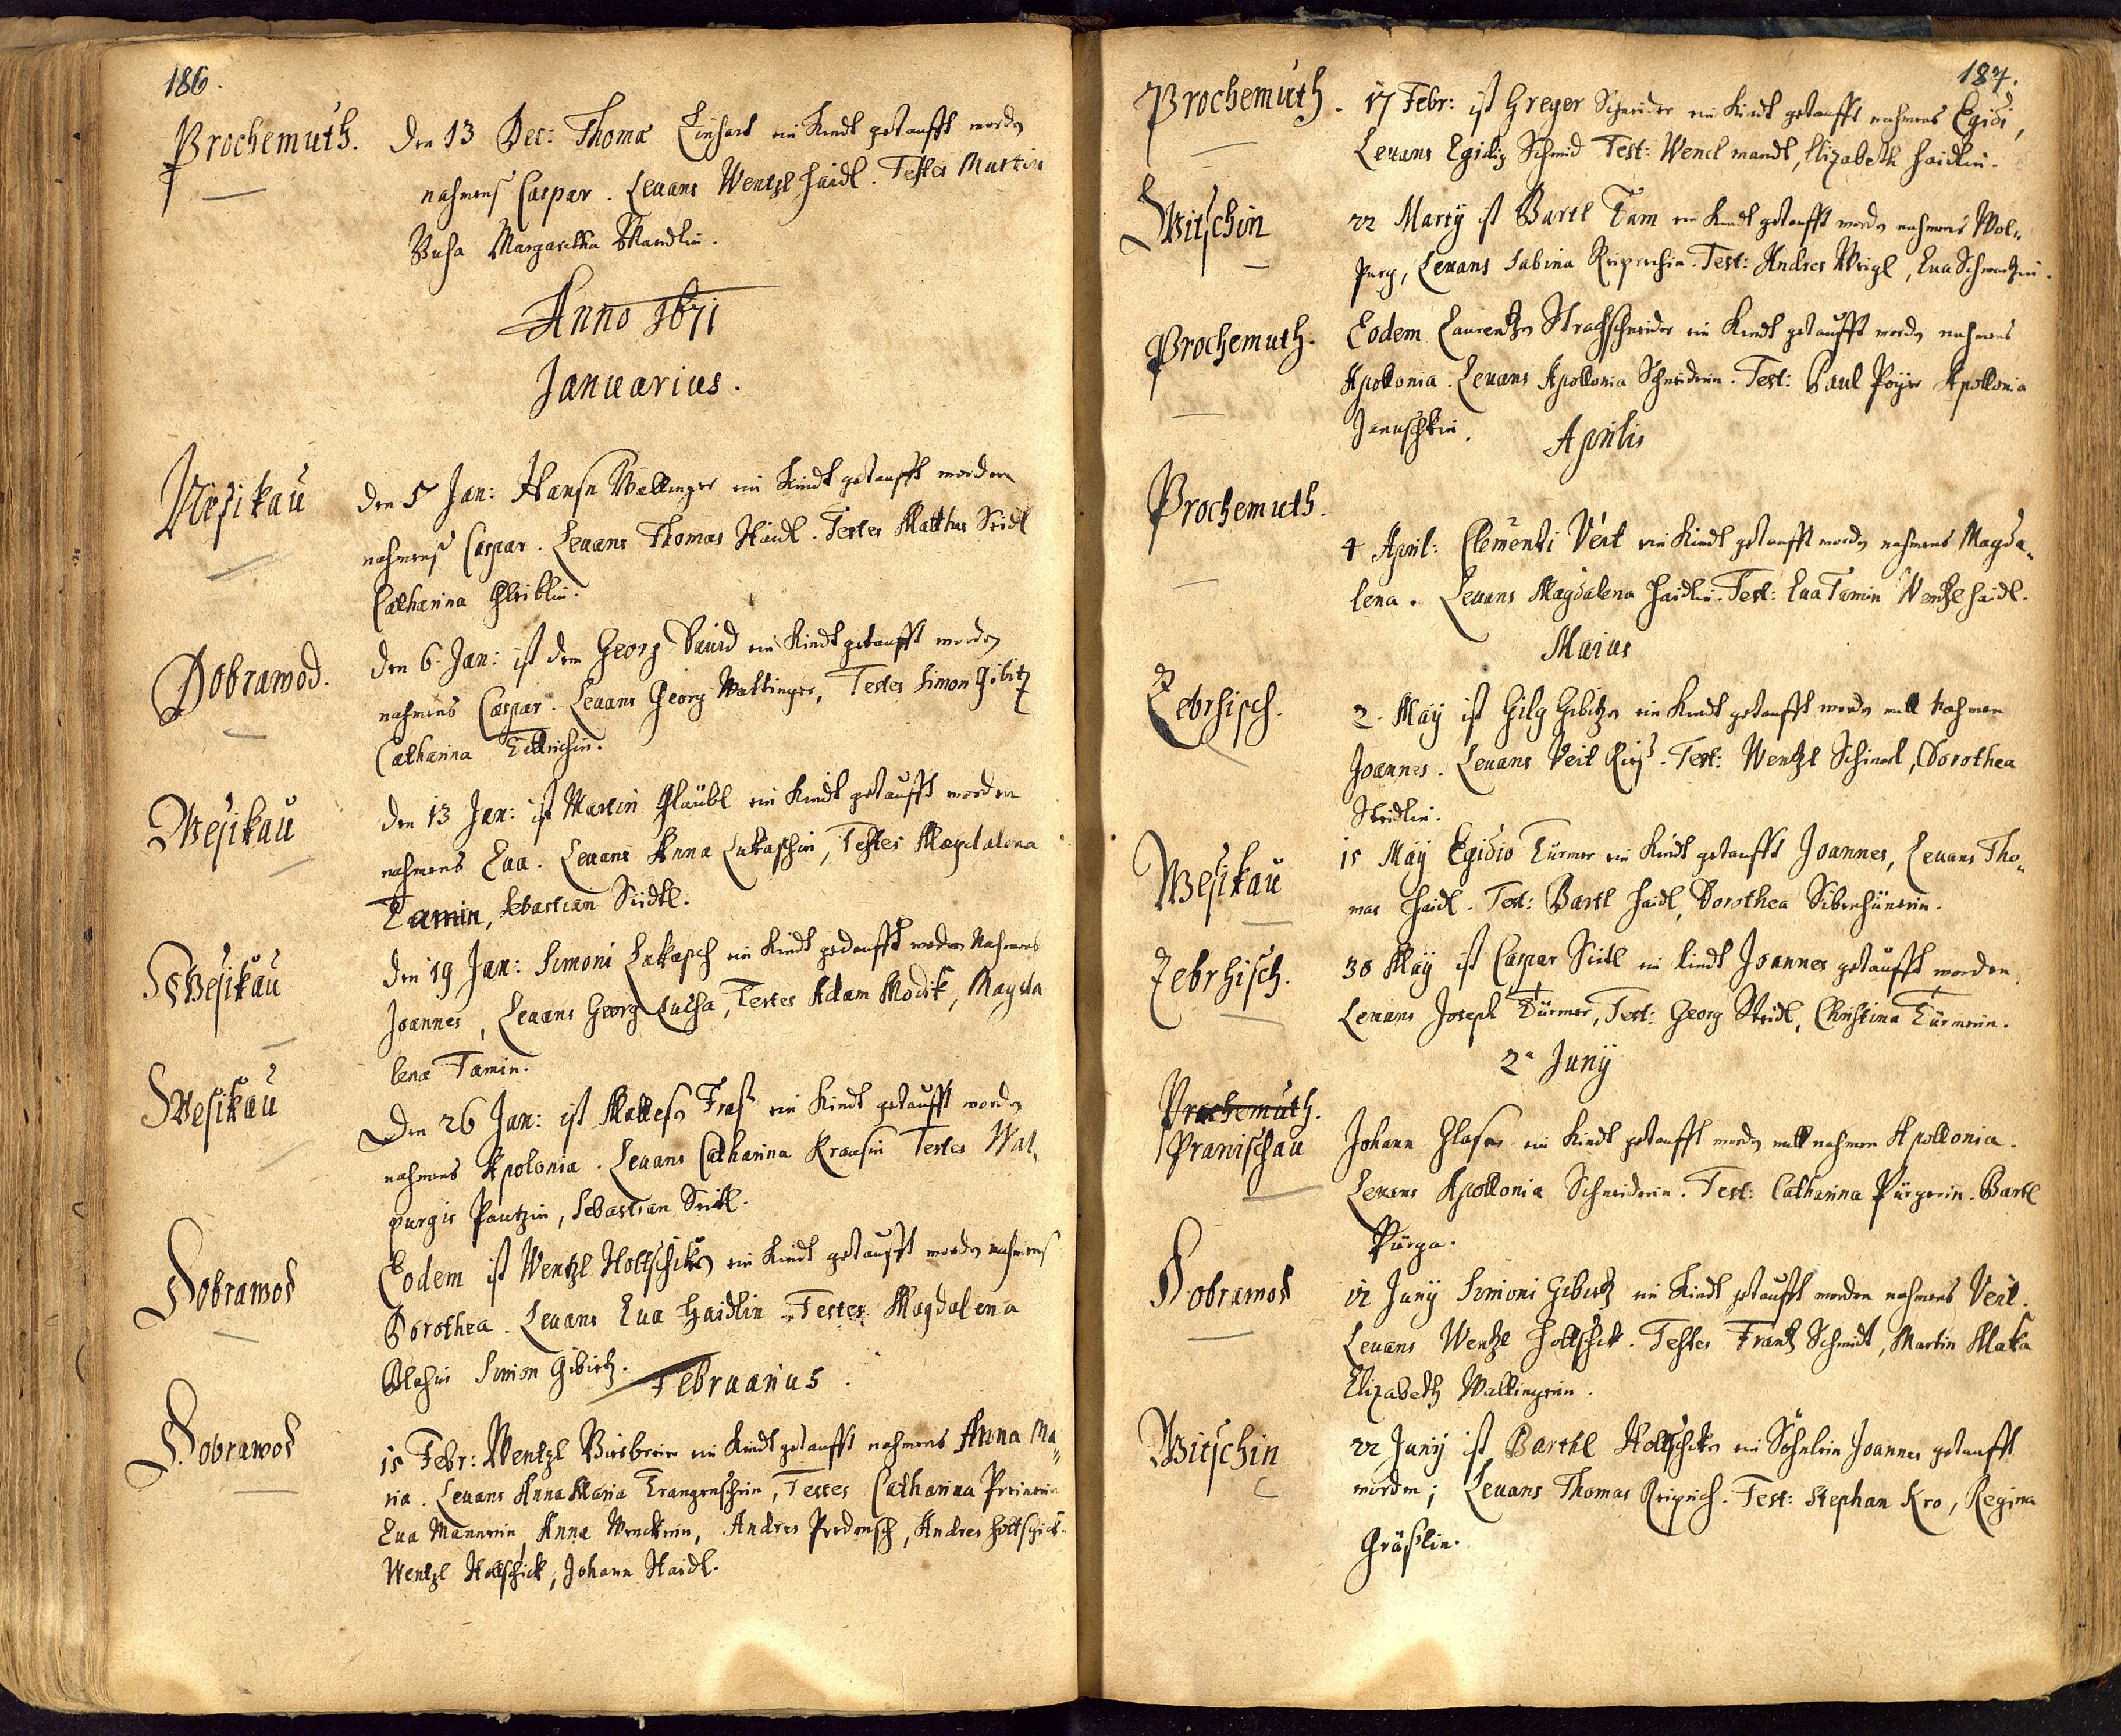 186.
Prochemuth. Den 13 Dec: Thoma Linhart ein Kindt getaufft worden
nahmens Caspar. Leuans Wentzl Haidl. Testes Martin
Buha Margaretha Mandlin.
Anno 1671
Januarius.
Wesikau den 5 Jan: Hansen Wallinger ein Kindt getaufft worden
nahmens Caspar. Leuans Thomas Haidl. Testes Matthes Seidl
Catharina
Dobrawod. den 6 Jan: ist dem Georg Dauid ein Kindt getaufft worden
nahmens Caspar. Leuans Georg Wallinger, Testes Simon Gibitz
Catharina
Wesikau den 13 Jan: ist Martin Gläubl ein Kindt getaufft worden
nahmens Eua. Leuans Anna Lukaschin, Testes Magdalena
Tamin, Sebastian Seidtl.
Wesikau den 19 Jan: Simoni Lukasch ein Kindt gedaufft worden Nahmens
Joannes, Leuans Georg Lucha, Testes Adam Modik, Magda
lena Tamin.
Wesikau Den 26 Jan: ist Mattesen Fras ein Kindt getaufft worden
nahmens Apolonia. Leuans Catharina Krausin Testes Wal,
purgis Pautzin, Sebastian Seidl.
Dobrawod Eodem ist Wentzl Holtschiken ein Kindt getaufft worden nahmens
Dorothea. Leuans Eua Haidlin. Testes Magdalena
Blahin Simon Gibietz.
Februarius.
Dobrawod 15 Febr: Wentzl ein Kindt getaufft nahmens Anna Ma„
ria. Leuans Anna Maria Testes Catharina
Eua Mannerin, Anna Andres Andres Holtschick
Wentzl Holtschick, Johann Haidl.
187.
Prochemuth. 17 Febr: ist Greger Schneider ein Kindt getaufft nahmens Egidi,
Leuans Egidig Schmid Test: Wencl Mandl, Elizabeth Haidlin.
Witschin 22 Marty ist Bartl Tam ein Kindt getaufft worden nahmens Wol„
purg, Leuans Sabina Reiprichin. Test: Andres Weigl, Eua
Prochemuth. Eodem Laurentzen Strachschneider ein Kindt getaufft worden nahmens
Apollonia. Leuans Apollonia Schneiderin. Test: Paul Apollonia
Januschkin.
Aprilis
Prochemuth. 4 April: Clementi Veit ein Kindt getaufft worden nahmens Magda„
lena. Leuans Magdalena Haidlin. Test: Eua Tamin Wentzl Haidl.
Maius
Zebrhisch. 2. May ist Gilg Gibitzen ein Kindt getaufft worden mitt Nahmen
Joannes. Leuans Veit Test: Wentzl Dorothea
Seidlin.
Wesikau 15 May Egidio Türmer ein Kindt getaufft Joannes, Leuans Tho„
mas Haidl. Test: Bartl Haidl, Dorothea Sibenhünerin.
Zebrhisch. 30 May ist Caspar Seitl ein Kindt Joannes getaufft worden,
Leuans Joseph Türmer, Test: Georg Seidl, Christina Türmerin.
2a Juny
Prochemuth.
Pranischau Johann Glaser ein Kindt getaufft worden mitt nahmen Apollonia.
Leuans Apollonia Schneiderin. Test: Catharina Pürgerin. Bartl
Pürga.
Dobrawod 12 Juny Simoni Gibietz ein Kindt getaufft worden nahmens Veit.
Leuans Wentzl Holtschick. Testes Frantz Schmidt, Martin Maka
Elizabeth Wallingerin.
Witschin 22 Juny ist Barthl Holtschiken ein Söhnlein Joannes getaufft
worden; Leuans Thomas Reiprich. Test: Stephan Kro, Regina
Gräßlin.